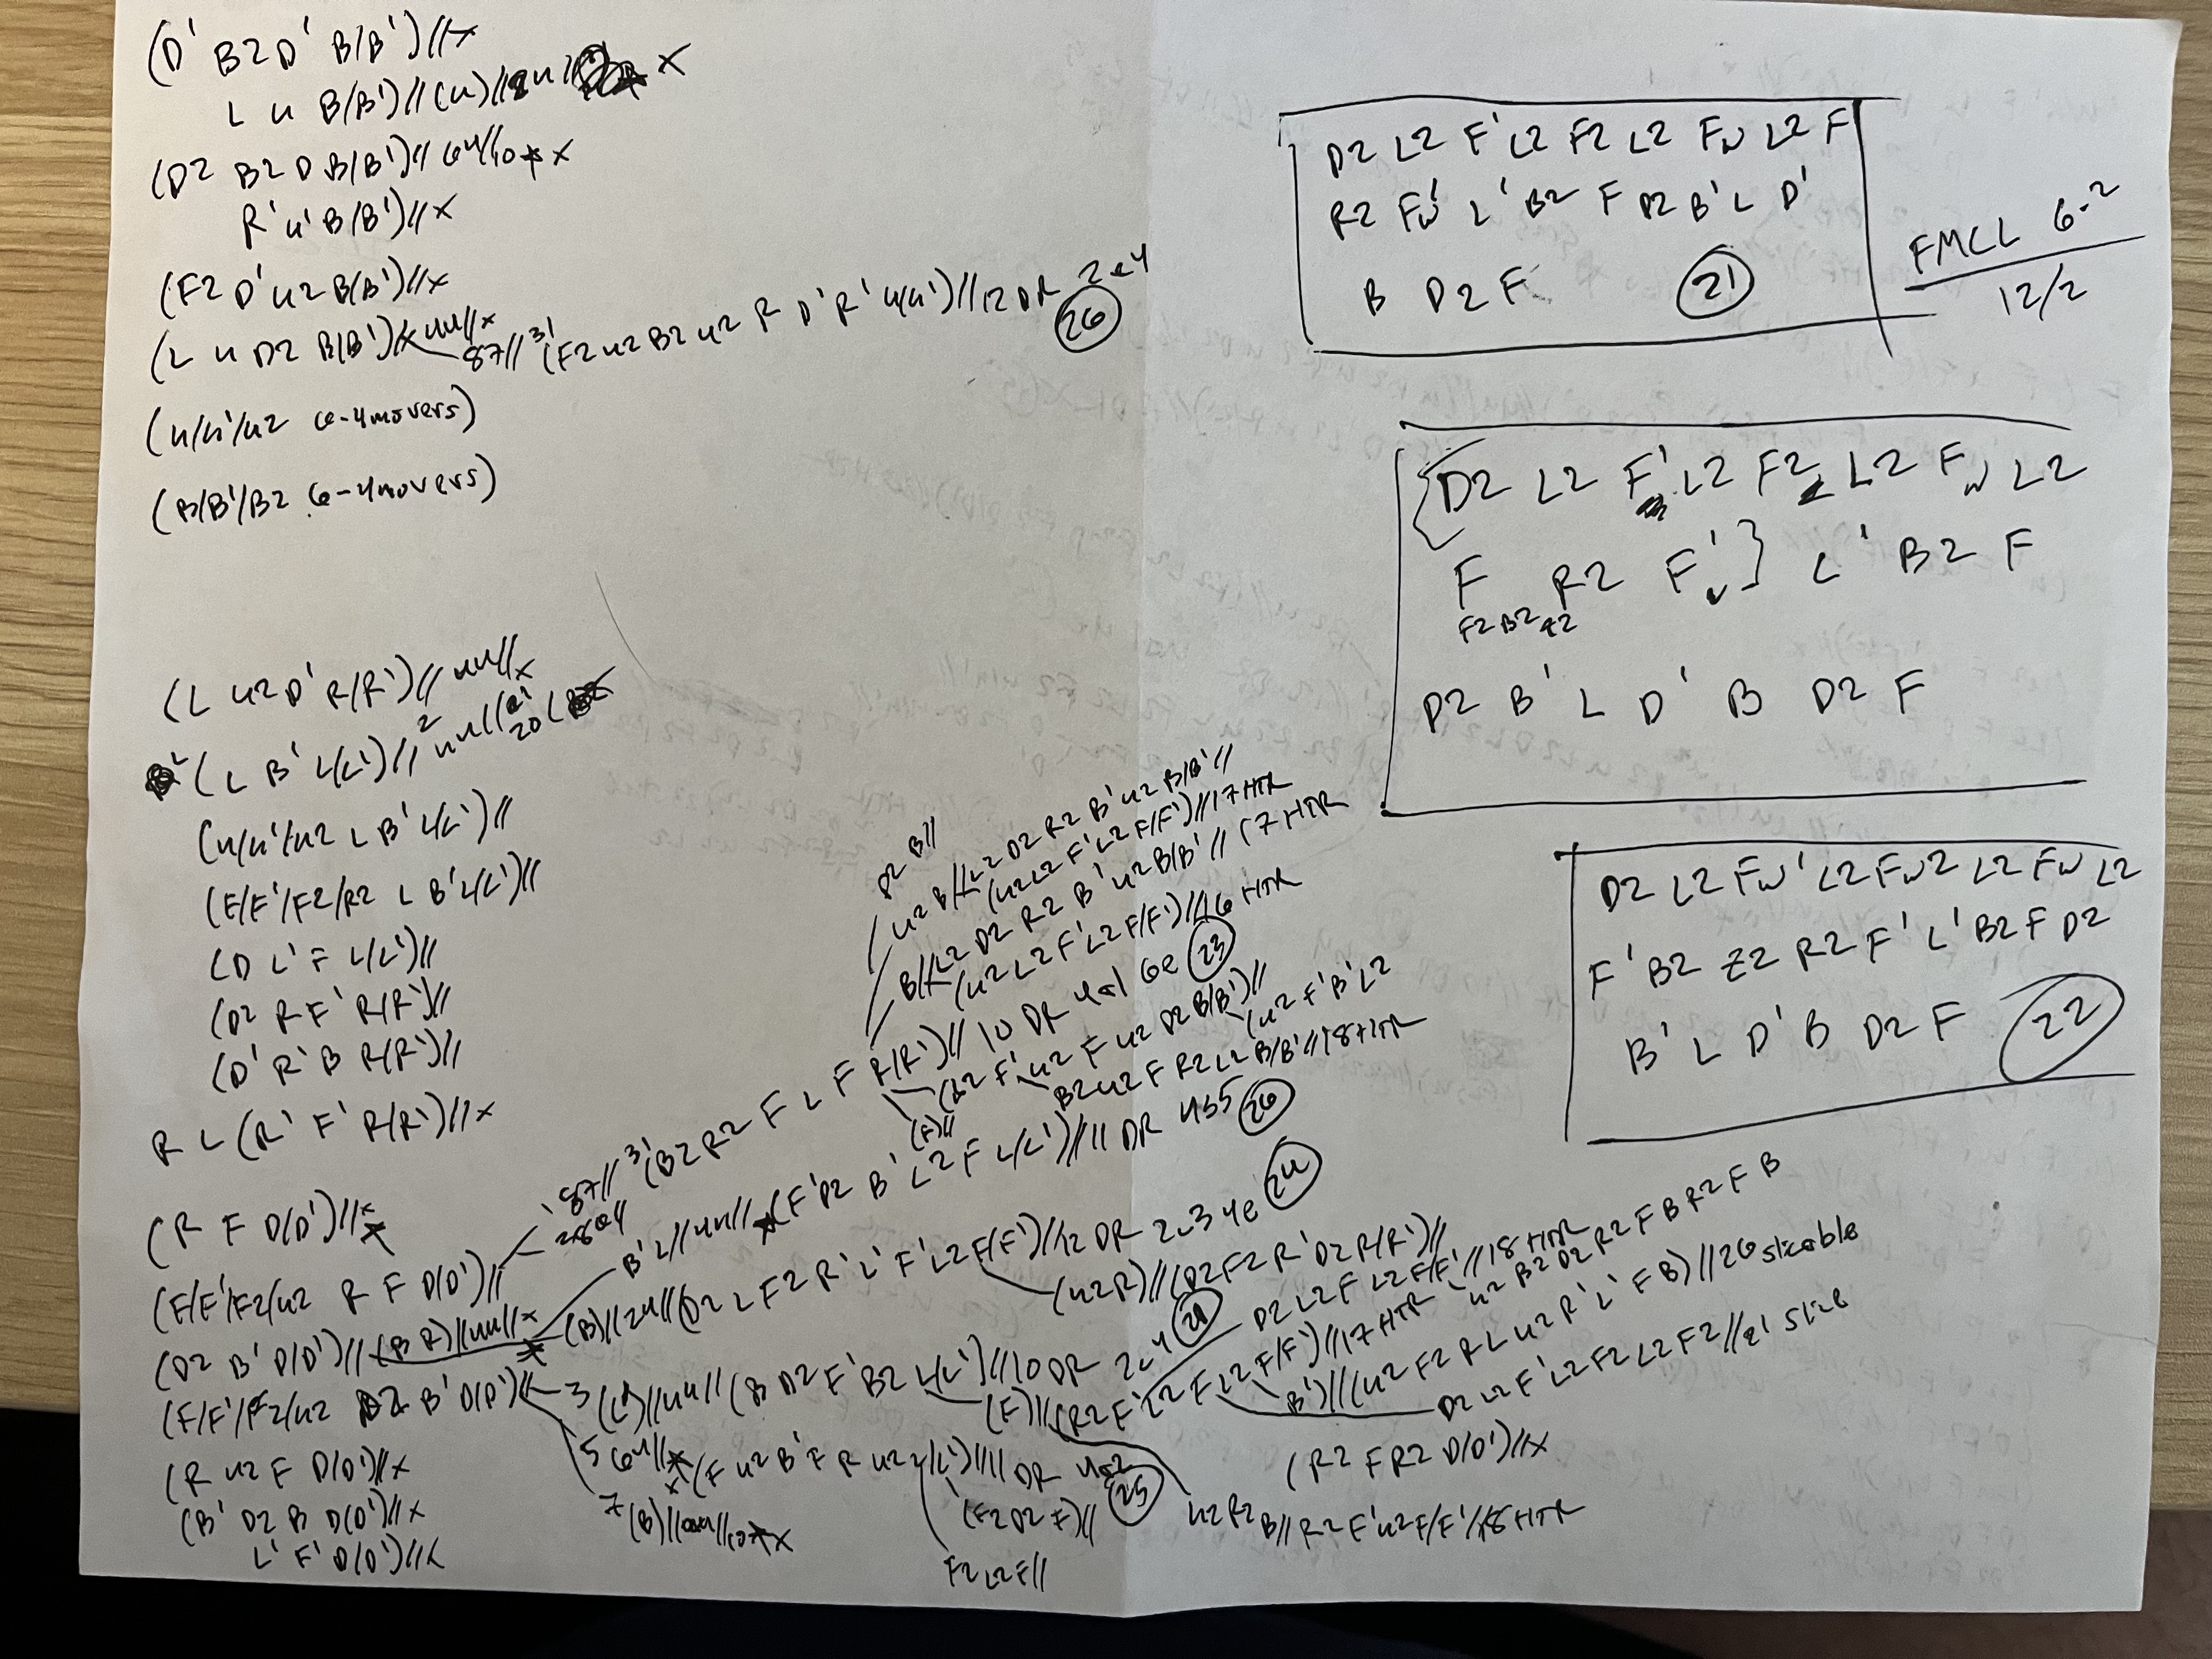 (D' B2 D' B/B')//x
L u B/(B')//(u)// x
(D2 B2 D B/(B')// 64//10 x
R' u' B/(B')//x
(F2 D' u2 B/(B')//x
(L u D2 B/(B') uu//x
87// 3' (F2 u2 B2 u2 R D' R' u/(u')//12 DR 2e4
26
(u/u'/u2 6-4movers)
(B/B'/B2 6-4movers)
(L u2 D' R/(R')// uu//x
(L B' L/(L')//
(u/u'/u2 L B' L/(L')//
(F/F'/F2/R2 L B' L/(L')//
(D L' F L/(L')//
(D2 R F' R/(R')//
(D' R' B R/(R')//
R L (R' F' R/(R')//x
(R F D/(D')//x
(F/F'/F2/u2 R F D/(D')//
(D2 B' D/(D')//(B R)//uu//x
(F/F'/F2/u2 D2 B' D/(D')
(R u2 F D/(D')//x
(B' D2 B D/(D')//x
L' F' D/(D')//x
B//
u2 B//L2 D2 R2 B' u2 B/B'//
(u2 L2 F' L2 F/F')//17 HTR
B//L2 D2 R2 B' u2 B/B'//17 HTR
(u2 L2 F' L2 F/F')//16 HTR
87// 3' (B2 R2 F L F R/(R')//10 DR 4a1 6e 23
F' u2 F u2 D2 B/(B')//
(u2 F' B' L2
B2 u2 F R2 L2 B/B'//18 HTR
(F)//
B' 2//uu// (F' D2 B' L2 F L/(L')//11 DR 4b5 26
(B)//2u//(D2 L F2 R' L' F' L2 F/(F')//12 DR 2c3 4e 24
(u2 R)//(D2 F2 R' D2 R/(R')//
3 (L')//uu//(B D2 F' B2 L/(L')//10 DR 2c4 21
D2 L2 F L2 F/F'//18 HTR
(F)//(R2 F' L2 F L2 F/F')//17 HTR
u2 B2 D2 R2 F B R2 F B
B')//(u2 F2 R L u2 R' L' F B)//26 sliceable
D2 L2 F' L2 F2 L2 F2//21 slice
5 64// (F u2 B' F R u2 L/(L')//11 DR 4a2
25
(F2 D2 F)//
F2 L2 F//
7 (B)// x
u2 R2 B//R2 F' u2 F/F'//18 HTR
(R2 F R2 D/(D')//x
D2 L2 F' L2 F2 L2 Fw L2 F
R2 Fw' L' B2 F D2 B' L D'
B D2 F 21
FMCL 6-2
12/2
{D2 L2 F' L2 F2 L2 Fw L2
F R2 Fw'} L' B2 F
F2 B2 z2
D2 B' L D' B D2 F
D2 L2 Fw' L2 Fw2 L2 Fw L2
F' B2 z2 R2 F' L' B2 F D2
B' L D' B D2 F 22